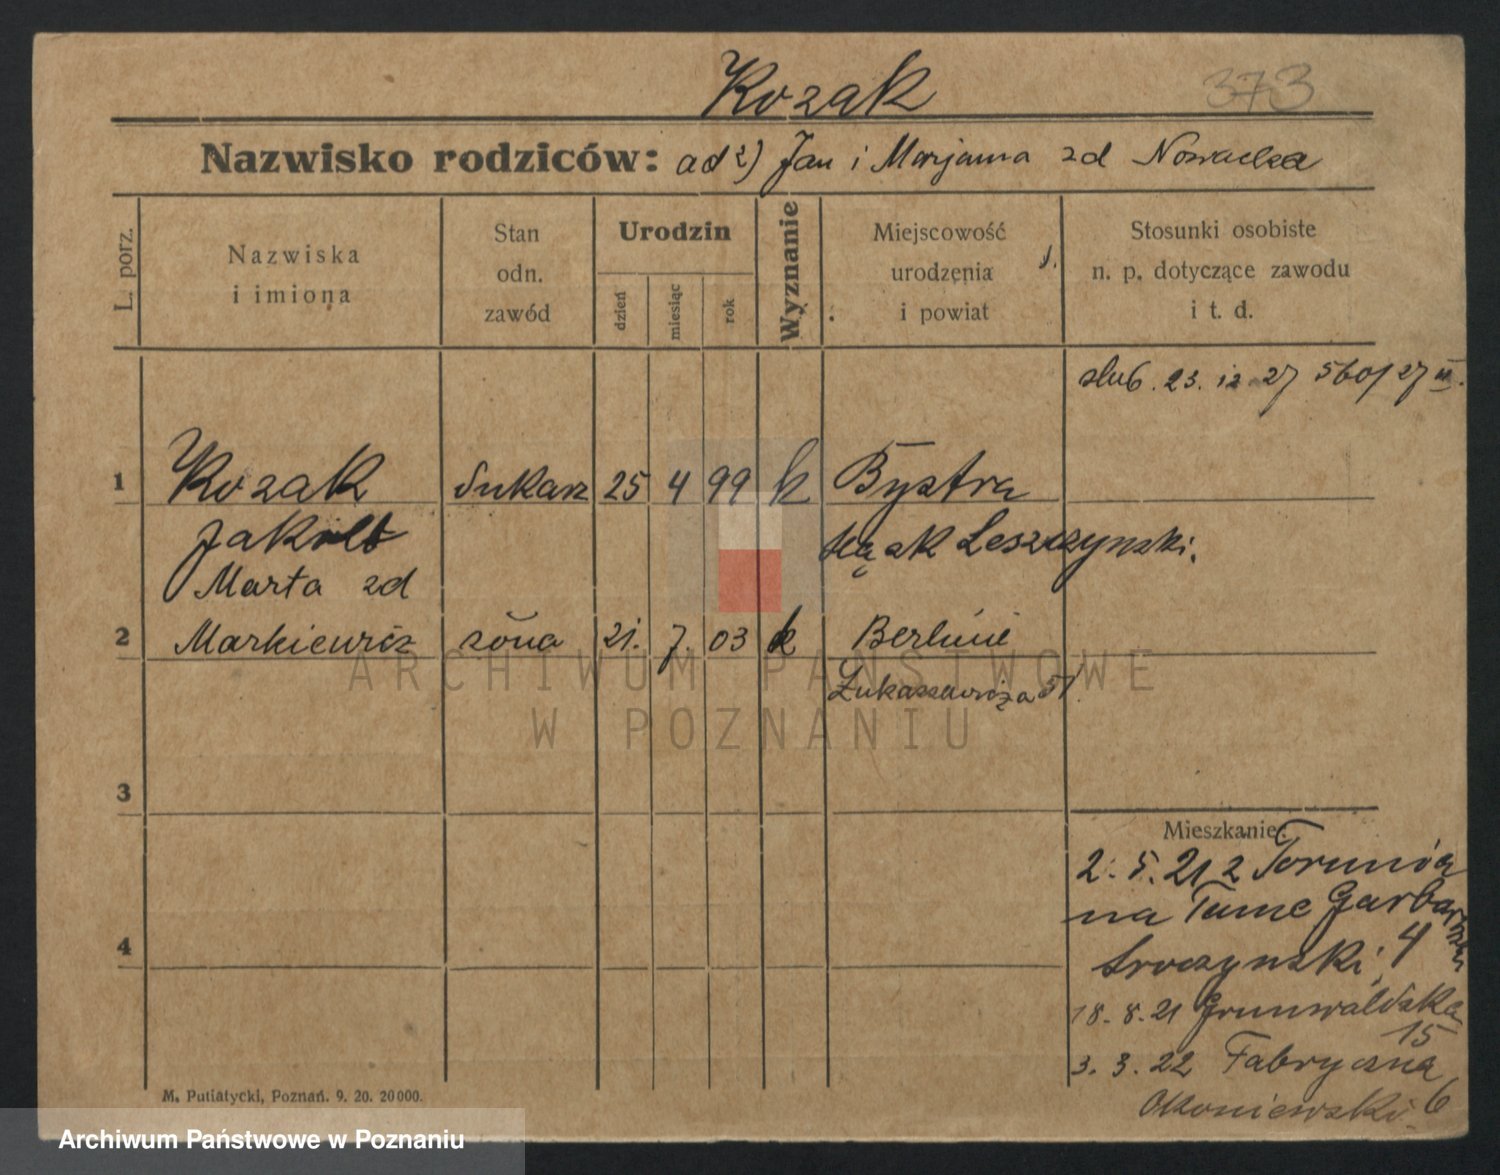 Kozak
373
Nazwisko rodziców: ad 2) Jan i Marjanna zd Nowacka
L. porz.
Nazwiska
i imiona
Stan
odn.
zawód
Urodzin
dzień
miesiąc
rok
Wyznanie
Miejscowość
urodzenia
i powiat
Stosunki osobiste
n. p. dotyczące zawodu
i t. d.
slub. 23. 12. 27 560/27 II.
1 Kozak 25 4 99 k Bystra
Jakób Leszczynski.
Marta zd
2 Markiewicz żona 21. 7. 03 k Berlinie
Łukaszewicza 51.
3
Mieszkanie:
2. 5. 21 z Torunia
na Tame Garbarska
4
Sroczynski 4
18. 8. 21 Grunwaldska
15
3. 3. 22 Fabryczna
6
Okoniewski
M. Putiatycki, Poznań. 9. 20. 20000.
ARCHIWUM PAŃSTWOWE
W POZNANIU
Archiwum Państwowe w Poznaniu